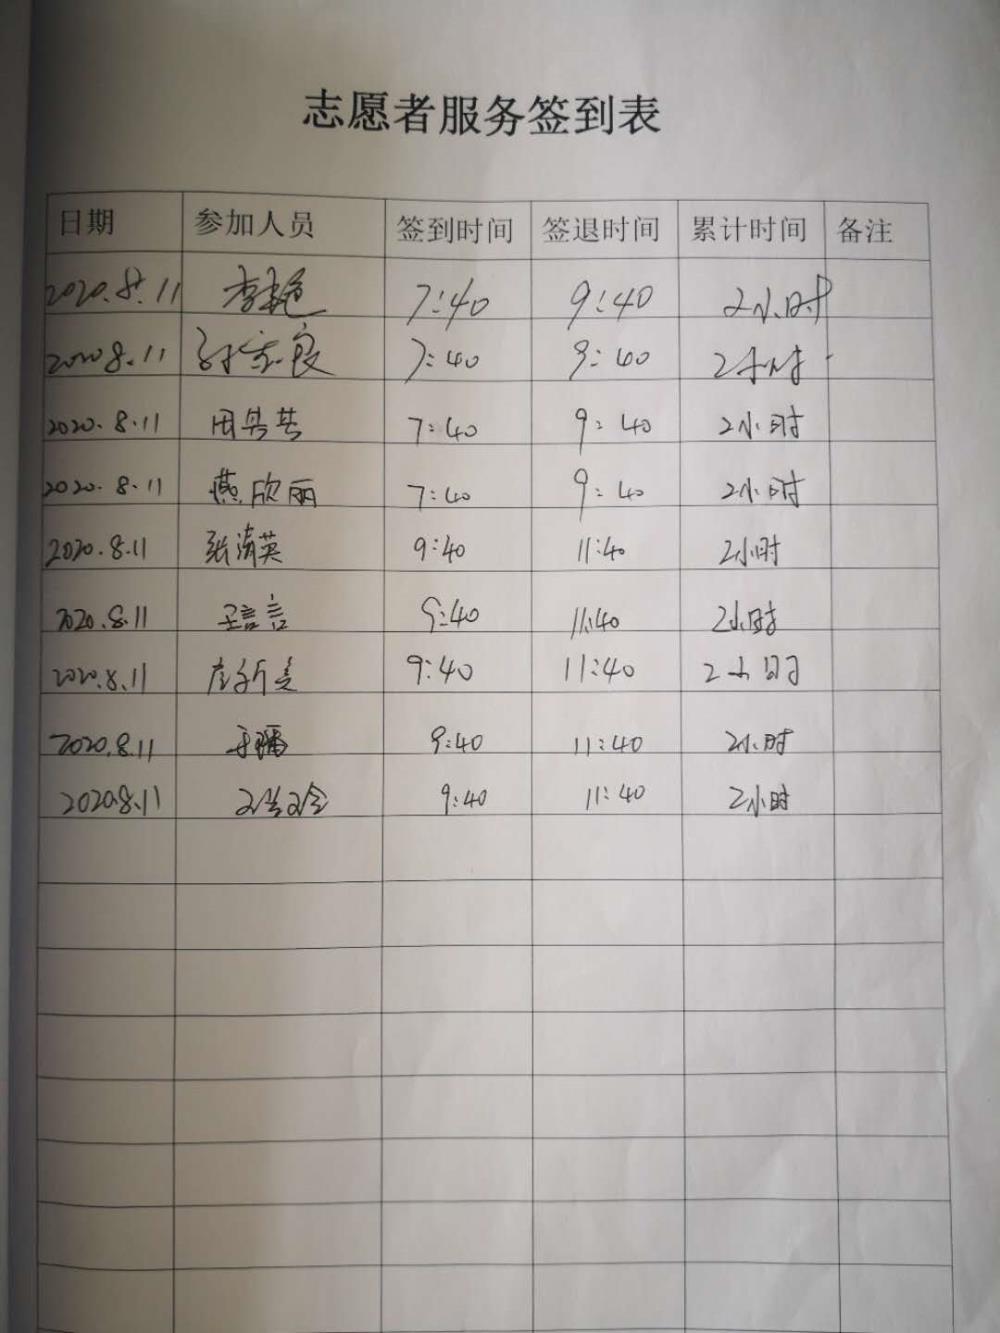 志愿者服务签到表
日期 参加人员 签到时间 签退时间 累计时间 备注
2020.8.11 李艳 7:40 9:40 2小时
2020 8.11 7:40 9:40 2小时
2020.8.11 周共共 7:40 9:40 2小时
2020.8.11 燕欣丽 7:40 9:40 2小时
2020.8.11 张清英 9:40 11:40 2小时
2020.8.11 王言言 9:40 11:40 2小时
2020.8.11 9:40 11:40 2小时
2020.8.11 9:40 11:40 2小时
2020.8.11 9:40 11:40 2小时